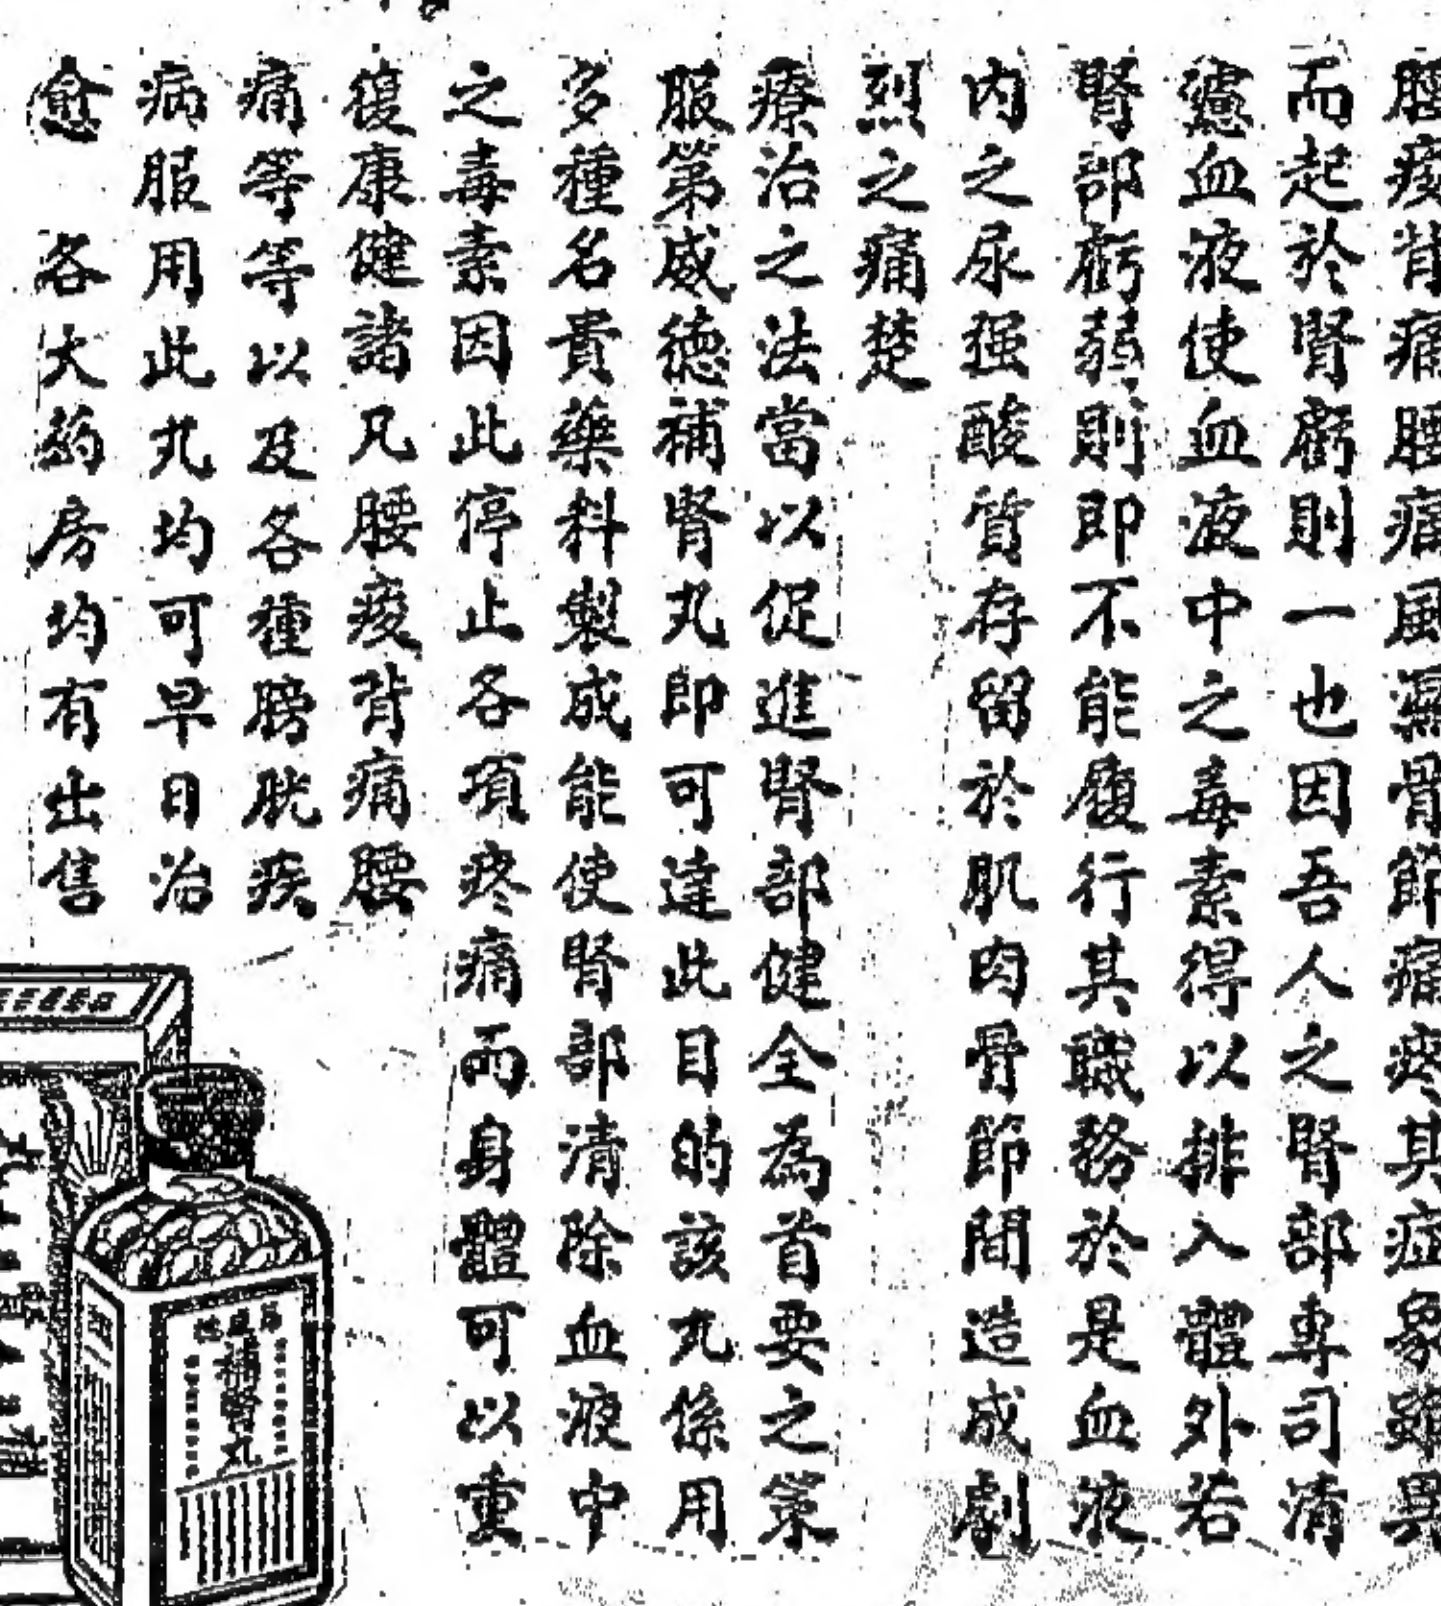 腰痠背痛腰痛風濕骨節痛疼其症象雖異
而起於腎虧則一也因吾人之腎部專司清
濾血液使血液中之毒素得以排入體外若
腎部虧弱則即不能履行其職務於是血液
內之尿强酸質存留於肌肉骨節間造成劇
烈之痛楚
療治之法當以促進腎部健全為首要之策
服第威德補腎丸即可達此目的該丸係用
多種名貴藥料製成能使腎部清除血液中
之毒素因此停止各項疼痛而身體可以重
復康健諸凡腰痠背痛腰
痛等等以及各種膀胱疾
病服用此丸均可早日治
愈 各大药房均有出售
補腎丸